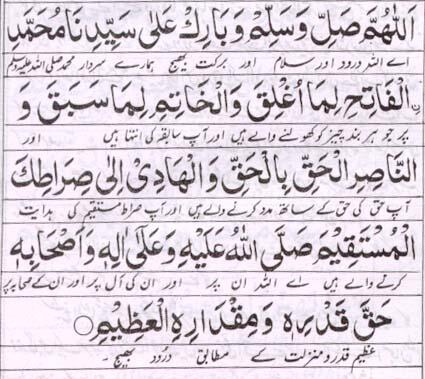 اَللّٰهُمَّ صَلِّ وَسَلِّمْ وَبَارِكْ عَلٰى سَيِّدِنَا مُحَمَّدِ
اے اللہ درود اور سلام اور برکت بھیج ہمارے سردار محمد صلی اللہ علیہ وسلم
الْفَاتِحِ لِمَا اُغْلِقَ وَالْخَاتِمِ لِمَا سَبَقَ وَ
پر جو ہر بند چیز کو کھولنے والے ہیں اور آپ سابقہ کی انتہا ہیں اور
النَّاصِرِ الْحَقِّ بِالْحَقِّ وَالْهَادِيْ اِلٰى صِرَاطِكَ
آپ حق کی حق کے ساتھ مدد کرنے والے ہیں اور آپ صراط مستقیم کی ہدایت
الْمُسْتَقِيْمِ صَلَّى اللّٰهُ عَلَيْهِ وَعَلٰى اٰلِهٖ وَاَصْحَابِهٖ
کرنے والے ہیں اے اللہ ان پر اور ان کی آل پر اور ان کے صحابہ پر
حَقَّ قَدْرِهٖ وَمِقْدَارِهِ الْعَظِيْمِ ○
عظیم قدر و منزلت کے مطابق درود بھیج ۔